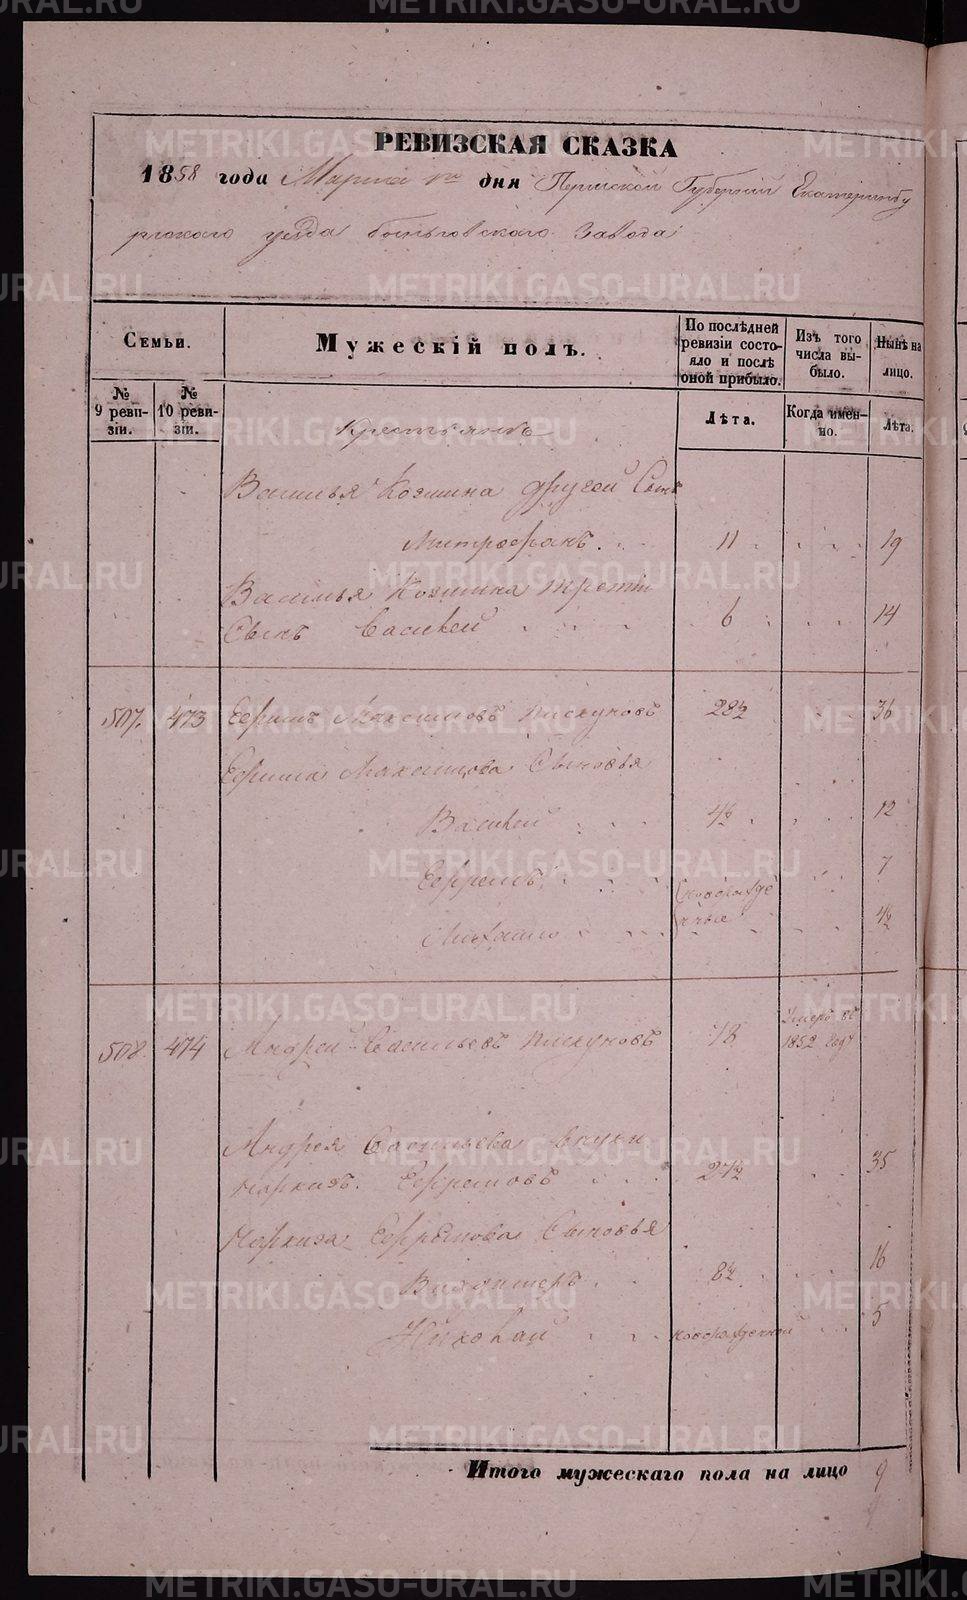 РЕВИЗСКАЯ СКАЗКА
1858 года Марта 1го дня Пермской Губернии Екатеринбу
ргскаго уезда Быньговскаго Завода
Семьи.
Мужескій полъ.
По послѣдней ревизіи состояло и послѣ оной прибыло.
Изъ того числа выбыло.
Нынѣ на лицо.
№ 9 ревизіи.
№ 10 ревизіи.
Лѣта.
Когда именно.
Лѣта.
Крестьянъ
Василья Козмина другой Сынъ
Митрофанъ. 11 19
Василья Козмина третій
Сынъ Василей 6 14
507. 473 Ефимъ Максимовъ Пискуновъ 28½ 36
Ефима Максимова Сыновья
Василей 4½ 12
Ефремъ 7
новорожде
нные
Михаило 4½
508. 474 Андрей Васильевъ Пискуновъ 78 Умеръ въ
1852 году
Андрея Васильева внуки
Наркизъ. Ефремовъ 27½ 35
Наркиза Ефремова Сыновья
8½ 16
Николай новорожденной 5
Итого мужескаго пола на лицо 9
METRIKI.GASO-URAL.RU